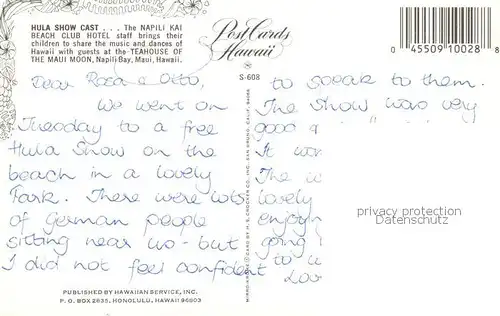 HULA SHOW CAST . . . The NAPILI KAI
BEACH CLUB HOTEL staff brings their
children to share the music and dances of
Hawaii with guests at the TEAHOUSE OF
THE MAUI MOON, Napili Bay, Maui, Hawaii.
Post Cards
Hawaii
S-608
0 45509 10028 8
Dear Rosa & Otto,
We went on
Tuesday to a free
Hula Show on the
beach in a lovely
Park. There were lots
of German people
sitting near us - but
I did not feel confident
to speak to them.
The Show was very
good
It
The
lovely
enjoy
going
to
Lov
privacy protection
Datenschutz
MIRRO-KROME CARD BY H. S. CROCKER CO., INC., SAN BRUNO, CALIF. 94066
PUBLISHED BY HAWAIIAN SERVICE, INC.
P. O. BOX 2835, HONOLULU, HAWAII 96803